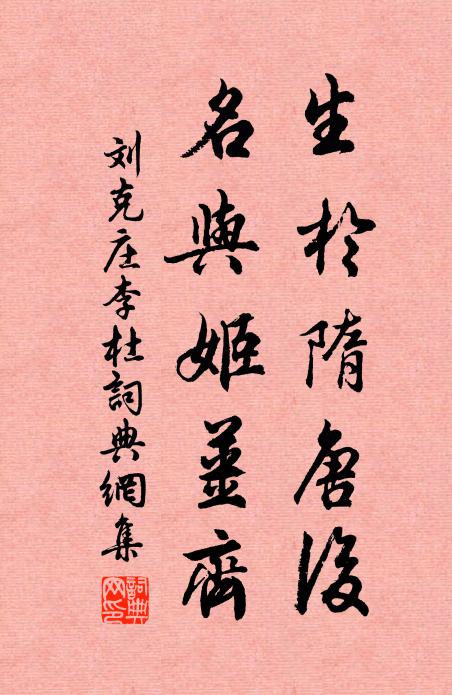 生於隋唐後
名與姬薑齊
刘克庄李杜詞典網集
詞典網印